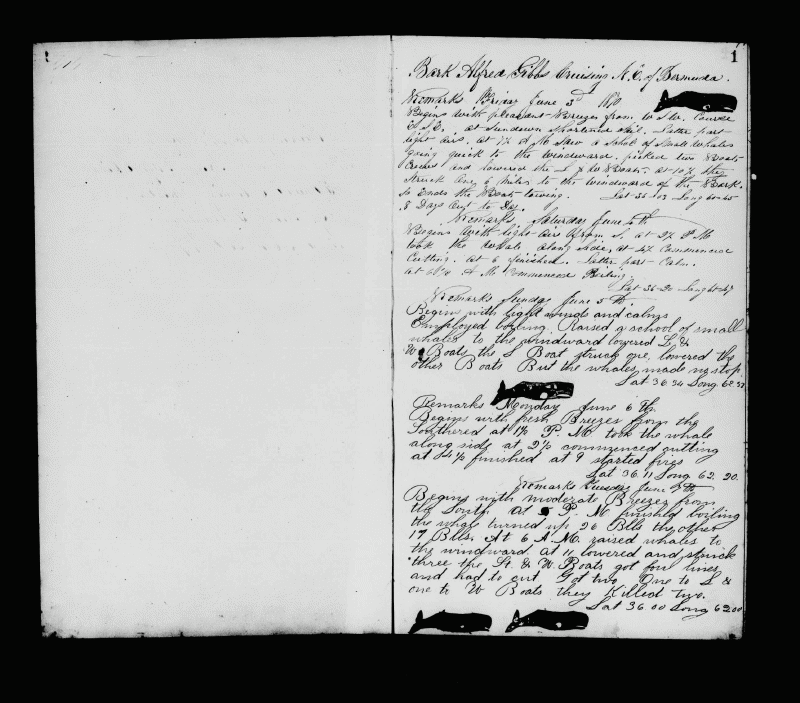 1
Bark Alfred Gibbs Cruising N.E. of Bermuda.
Remarks Friday June 3d 1870
Begins with pleasant Breezes from W S W. Course
E.S.E. at Sundown shortened sail. Latter part
light airs. at 7½ A M Saw a Shole of Small whales
going quick to the windward. picked two Boats
Crews and lowered the L & W Boats. at 10½ they
Struck One, 6 Miles to the windward of the Bark.
So Ends the Boats towing. Lat 35-03 Long
8 Days Out to Day.
Remarks Saturday June 4th
Begins with light airs from S. at 2½ P M
took the whale along side, at 4½ Commenced
Cutting. at 6 finished. Latter part Calm.
at A M Commenced Boiling.
Lat 36-20 Long
Remarks Sunday June 5 th.
Begins with light winds and calms
Employed boiling. Raised a school of small
whales to the windward lowered L &
W Boats the L Boat struck one. lowered the
other Boats But the whales made no stop
Lat 36 34 Long 62.37
Remarks Monday June 6 th.
Begins with fresh Breezes from the
Southered at 1½ P. M. took the whale
along side at 2½ commenced cutting
at 4½ finished at 9 started fires
Lat 36.11 Long 62.20.
Remarks Tuesday June 7 th
Begins with moderate Breezes from
the South. at 5 P. M. finished boiling
the whale turned up 26 Blls the other
17 Blls. At 6 A. M. raised whales to
the windward at 11 lowered and struck
three the St. & W. Boats got four lines
and had to cut Got two One to L &
one to W Boats they Killed two.
Lat 36.00 Long 62.00